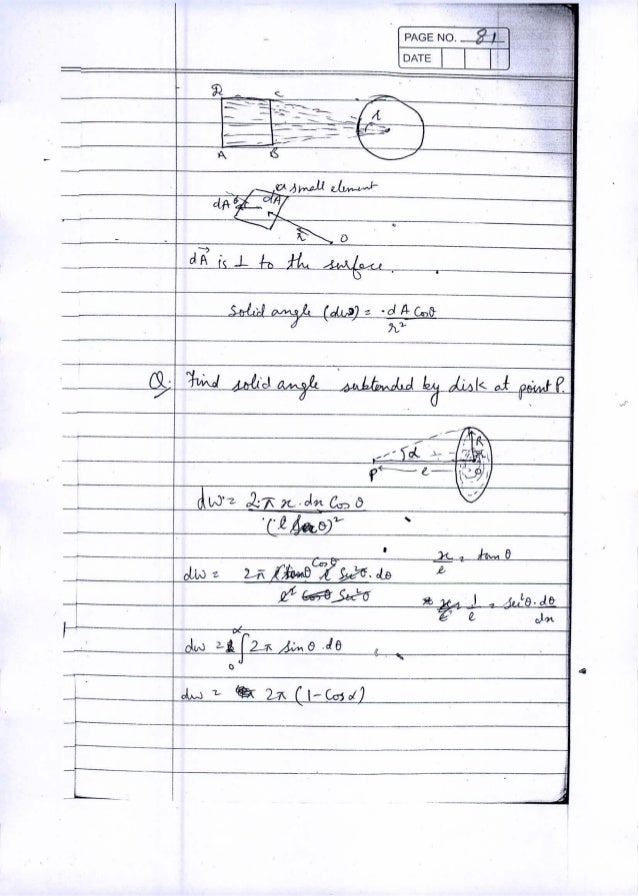 PAGE NO. 81
DATE
D C
r
A B
a small element
dA θ dA
r O
dA⃗ is ⊥ to the surface.
Solid angle (dω) = dA Cosθ / r²
Q. Find solid angle subtended by disk at point P.
R
α x
P l O
dω = 2π x.dx Cosθ / (l Secθ)²
x/l = tanθ
dω = 2π l tanθ Cosθ l Sec²θ.dθ / l² Cosθ Sec²θ
1/l = sec²θ.dθ/dx
dω = ∫₀^α 2π sinθ.dθ
dω = 2π (1-Cosα)